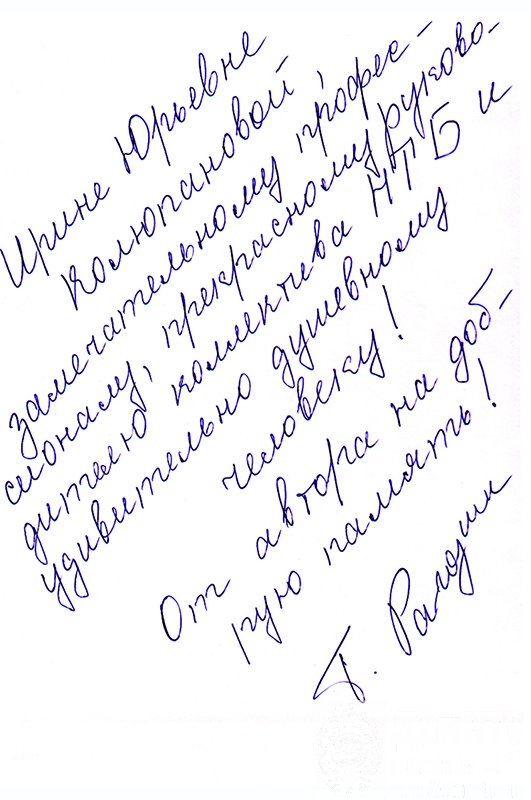 Ирине Юрьевне
Колюпановой,
замечательному профес-
сионалу, прекрасному руково-
дителю коллектива НТБ и
удивительно душевному
человеку!
От автора на доб-
рую память!
Г.